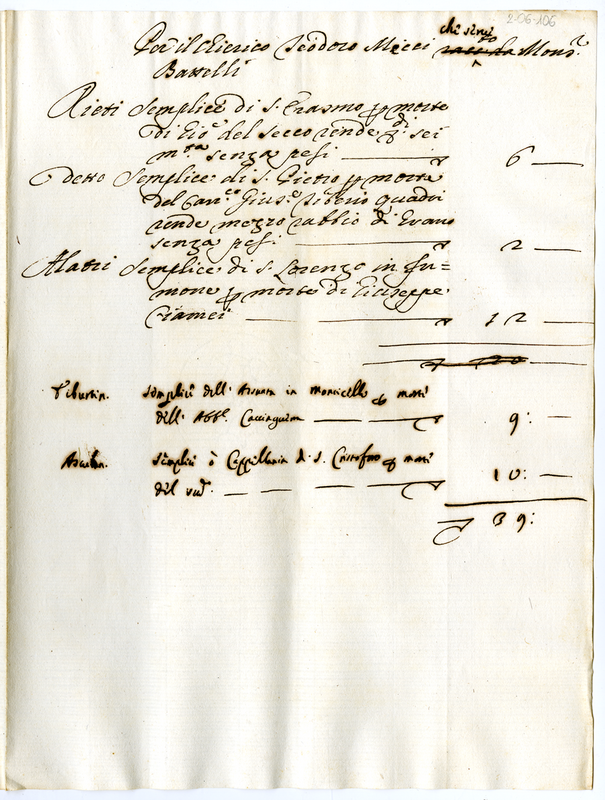 2-06-106
Per il Chierico Teodoro Micci Mons.r
Battelli
Rieti Semplice di S. Erasmo p morte
di Gio: del Secco rende di sei
m.ta senza pesi 6
Detto Semplice di S. Pietro p morte
del Can.co Gius.e Tiberio quadri
rende mezzo rabbio di Grano
senza pesi 2
Alatri Semplice di S. Lorenzo in fu=
mone p morte di Giuseppe
Ciamei 12
Tiburtin. Semplice dell' Assunta in Monticello p morte
dell' Abb.e 9:
Semplice ò Cappellania di S. Cristofaro p morte
del 10:
39: